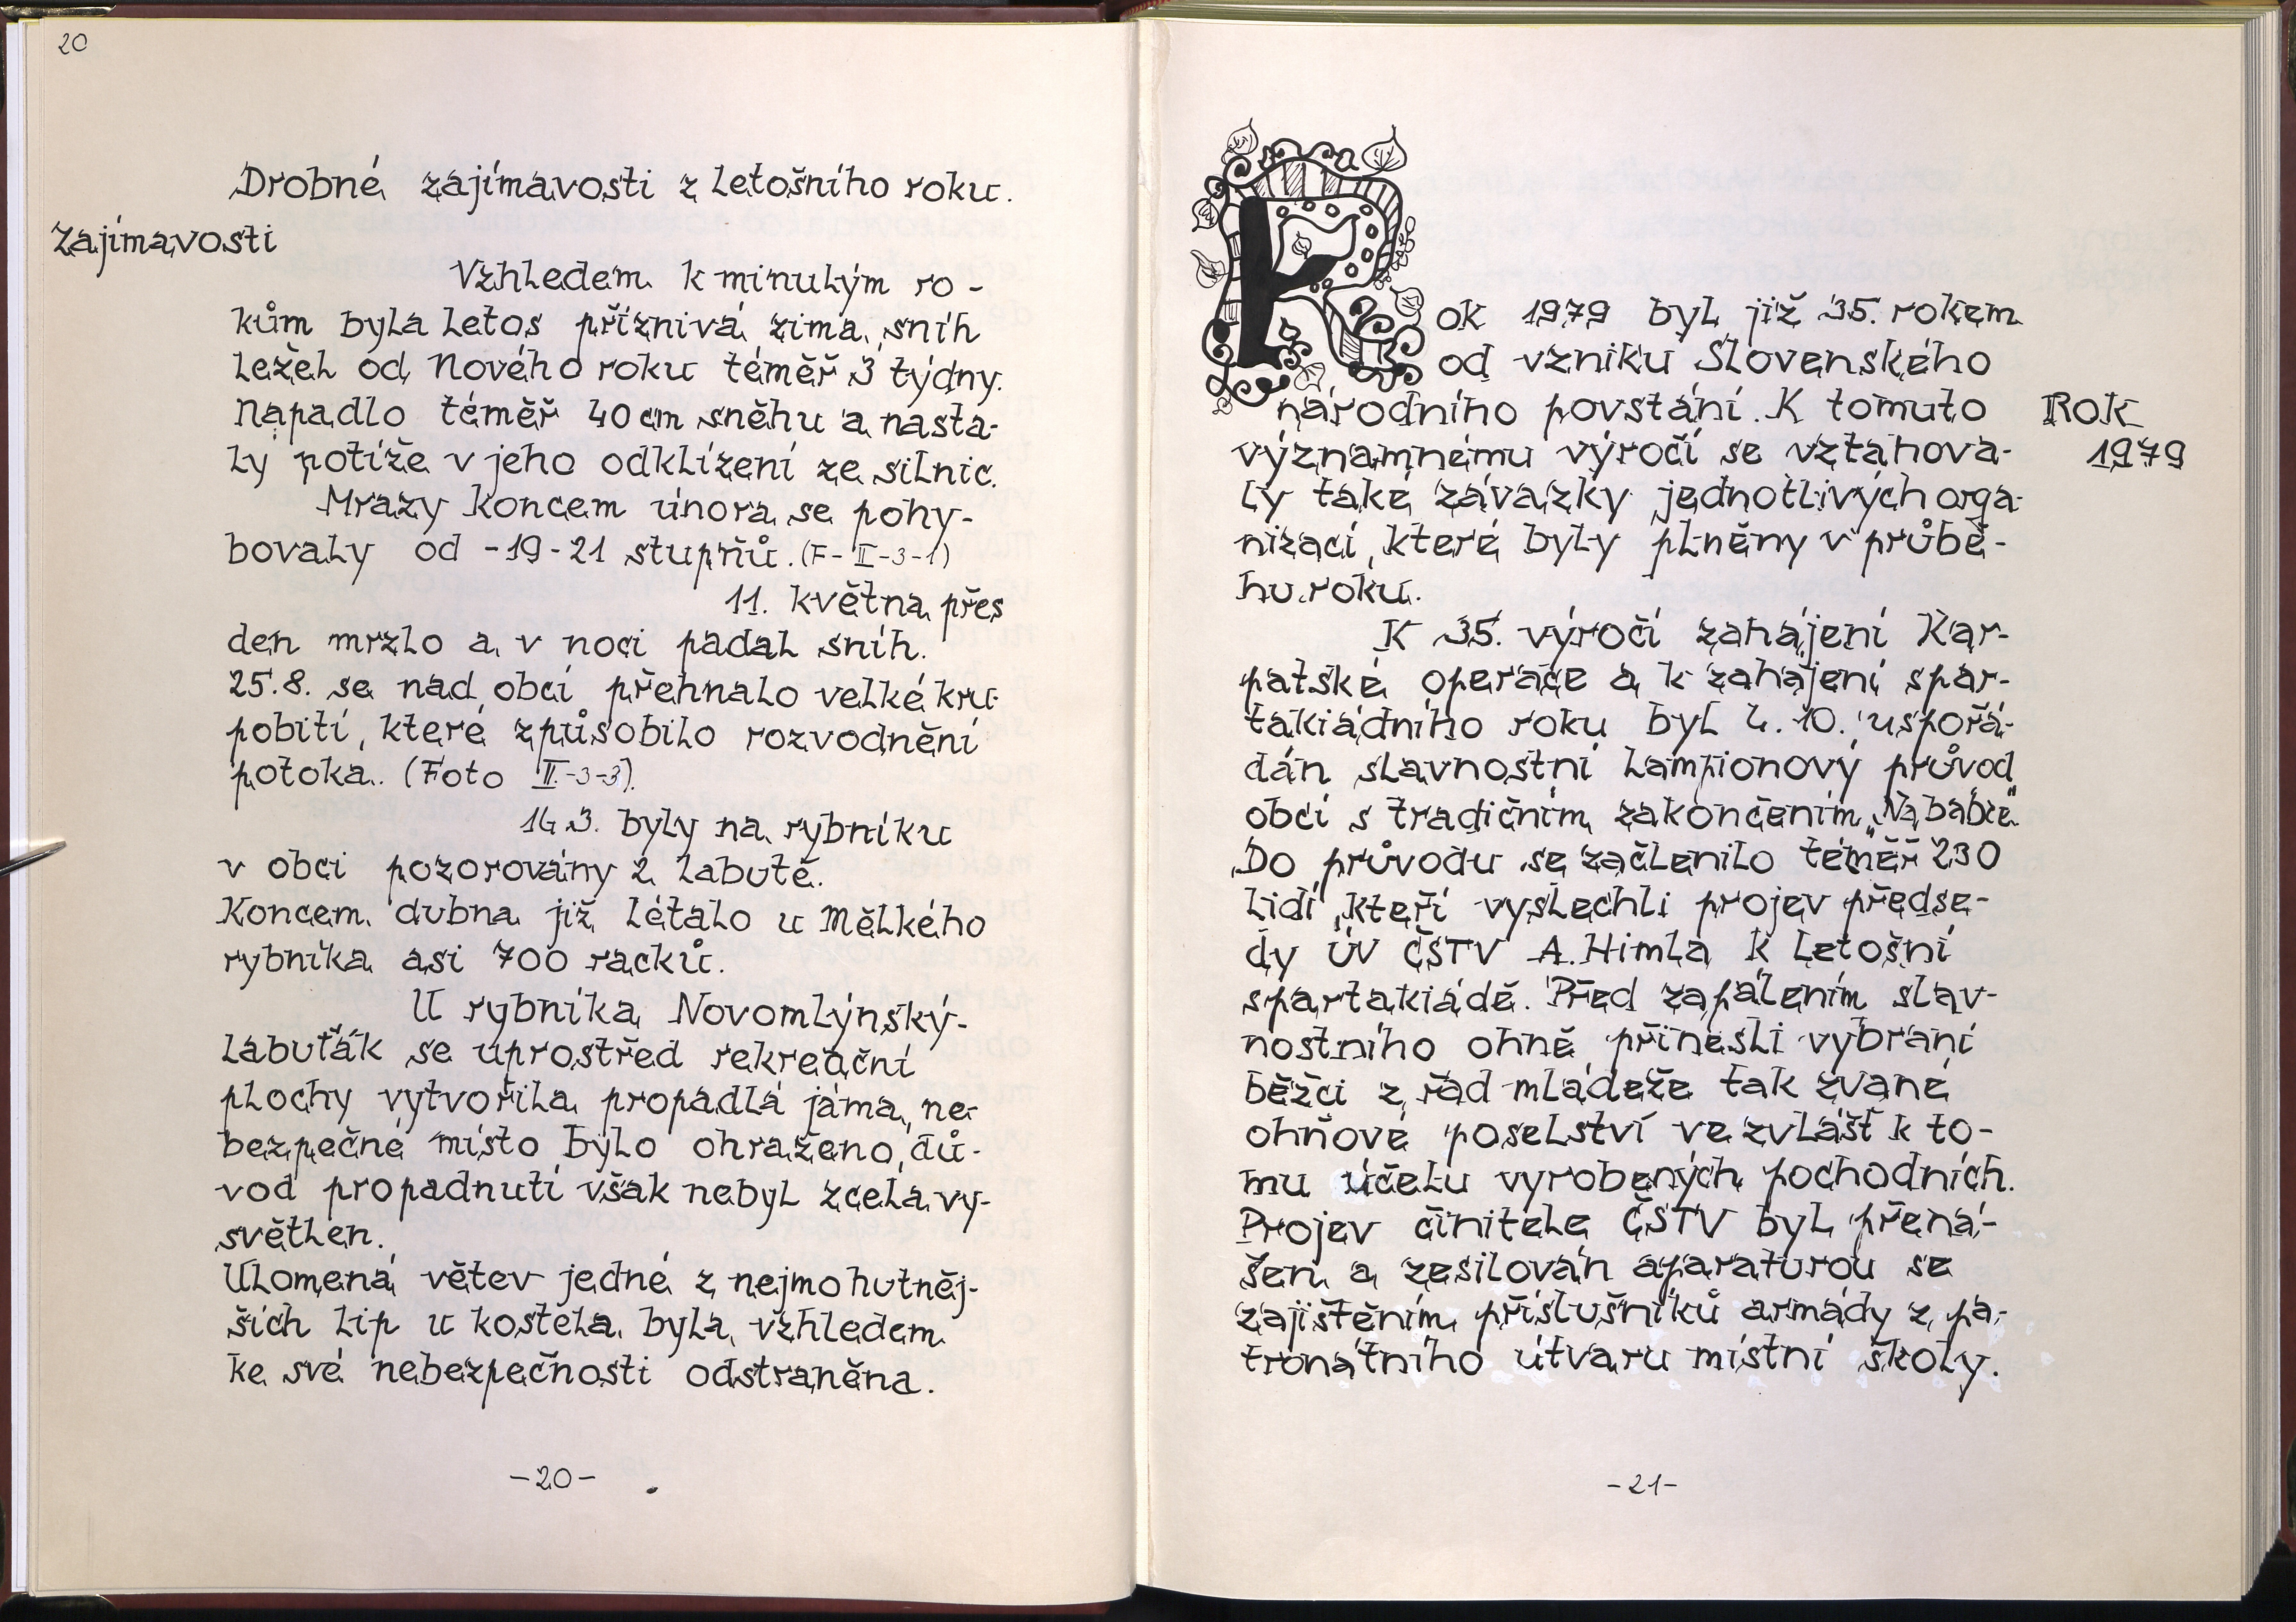 20
Drobné zajímavosti z letošního roku.
zajímavosti
Vzhledem k minulým ro-
kům byla letos příznivá zima, sníh
ležel od Nového roku téměř 3 týdny.
Napadlo téměř 40 cm sněhu a nasta-
ly potíže v jeho odklízení ze silnic.
Mrazy koncem února se pohy-
bovaly od -19-21 stupňů. (F-II-3-1)
11. května přes
den mrzlo a v noci padal sníh.
25.8. se nad obcí přehnalo velké kru-
pobití, které způsobilo rozvodnění
potoka. (Foto II-3-3).
16.3. byly na rybníku
v obci pozorovány 2 labutě.
Koncem dubna již létalo u Mělkého
rybníka asi 700 racků.
U rybníka Novomlýnský-
Labuťák se uprostřed rekreační
plochy vytvořila propadlá jáma, ne-
bezpečné místo bylo ohraženo, dů-
vod propadnutí však nebyl zcela vy-
světlen.
Ulomená větev jedné z nejmohutněj-
ších lip u kostela byla vzhledem
ke své nebezpečnosti odstraněna.
-20-
Rok 1979 byl již 35. rokem
od vzniku Slovenského
národního povstání. K tomuto
Rok
1979
významnému výročí se vztahova-
ly také závazky jednotlivých orga-
nizací, které byly plněny v průbě-
hu roku.
K 35. výročí zahájení Kar-
patské operace a k zahájení spar-
takiádního roku byl 4.10. uspořá-
dán slavnostní lampionový průvod
obcí s tradičním zakončením „Na babce"
Do průvodu se začlenilo téměř 230
lidí, kteří vyslechli projev předse-
dy ÚV ČSTV A. Himla k letošní
spartakiádě. Před zapálením slav-
nostního ohně přinesli vybraní
běžci z řad mládeže tak zvané
ohňové poselství ve zvlášť k to-
mu účelu vyrobených pochodních.
Projev činitele ČSTV byl přená-
šen a zesilován aparaturou se
zajištěním příslušníků armády z pa-
tronátního útvaru místní školy.
-21-